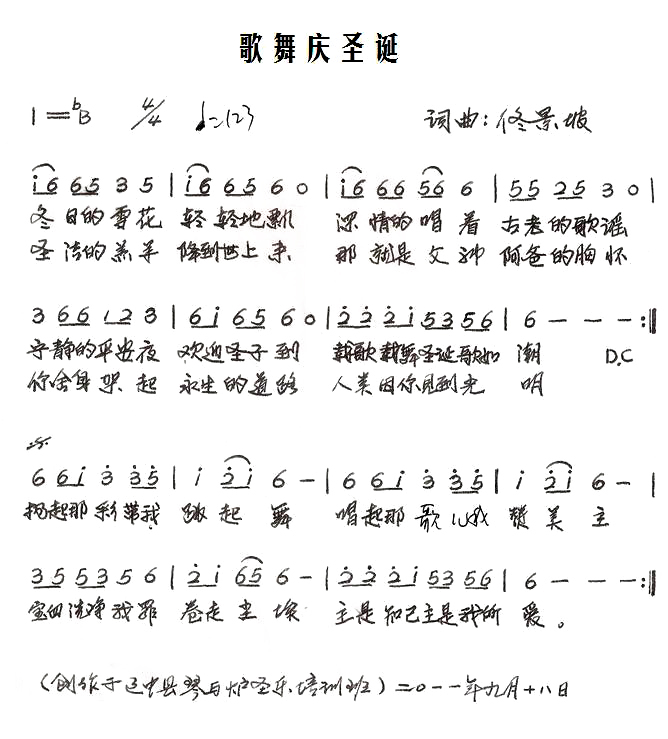 歌舞庆圣诞
1=ᵇB 4/4 ♩=123 词曲:佟景坡
i6 65 3 5 | i6 65 6 0 | i6 66 56 6 | 55 25 3 0 |
冬日的雪花 轻轻地飘 深情的唱着 古老的歌谣
圣洁的羔羊 降到世上来 那就是父神 阿爸的胸怀
3 66 12 3 | 6i 65 6 0 | 2̇2̇ 2̇i 53 56 | 6 — — — :‖
宁静的平安夜 欢迎圣子到 载歌载舞圣诞歌如潮 D.C
你舍身架起 永生的道路 人类因你见到光明
6 6i 3̇ 3̇5̇ | i 2̇i 6 — | 6 6i 3̇ 3̇5̇ | i 2̇i 6 — |
扬起那彩带我 跳起舞 唱起那歌儿我 赞美主
35 53 5 6 | 2̇i 65 6 — | 2̇2̇ 2̇i 53 56 | 6 — — — :‖
宝血洗净我罪 卷走尘埃 主是知己主是我的爱。
(创作于 中县琴与炉圣乐培训班)二〇一一年九月十八日